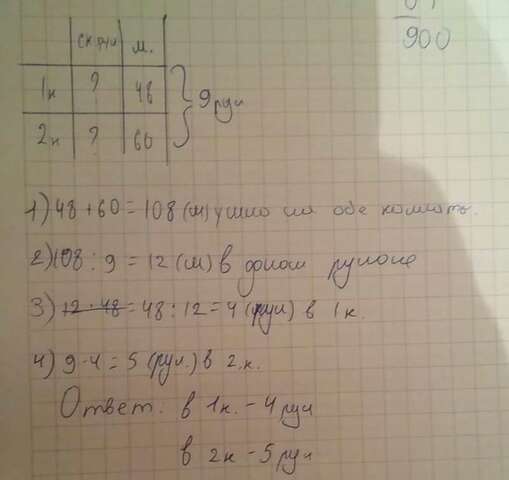 900
ск. рул м.
1к ? 48
9 рул
2к ? 60
1) 48 + 60 = 108 (м) ушло на обе комнаты.
2) 108 : 9 = 12 (м) в одном рулоне
3) 12 · 48 = 48 : 12 = 4 (рул) в 1к.
4) 9 - 4 = 5 (рул.) в 2.к.
Ответ: в 1к. - 4 рул
в 2к - 5 рул